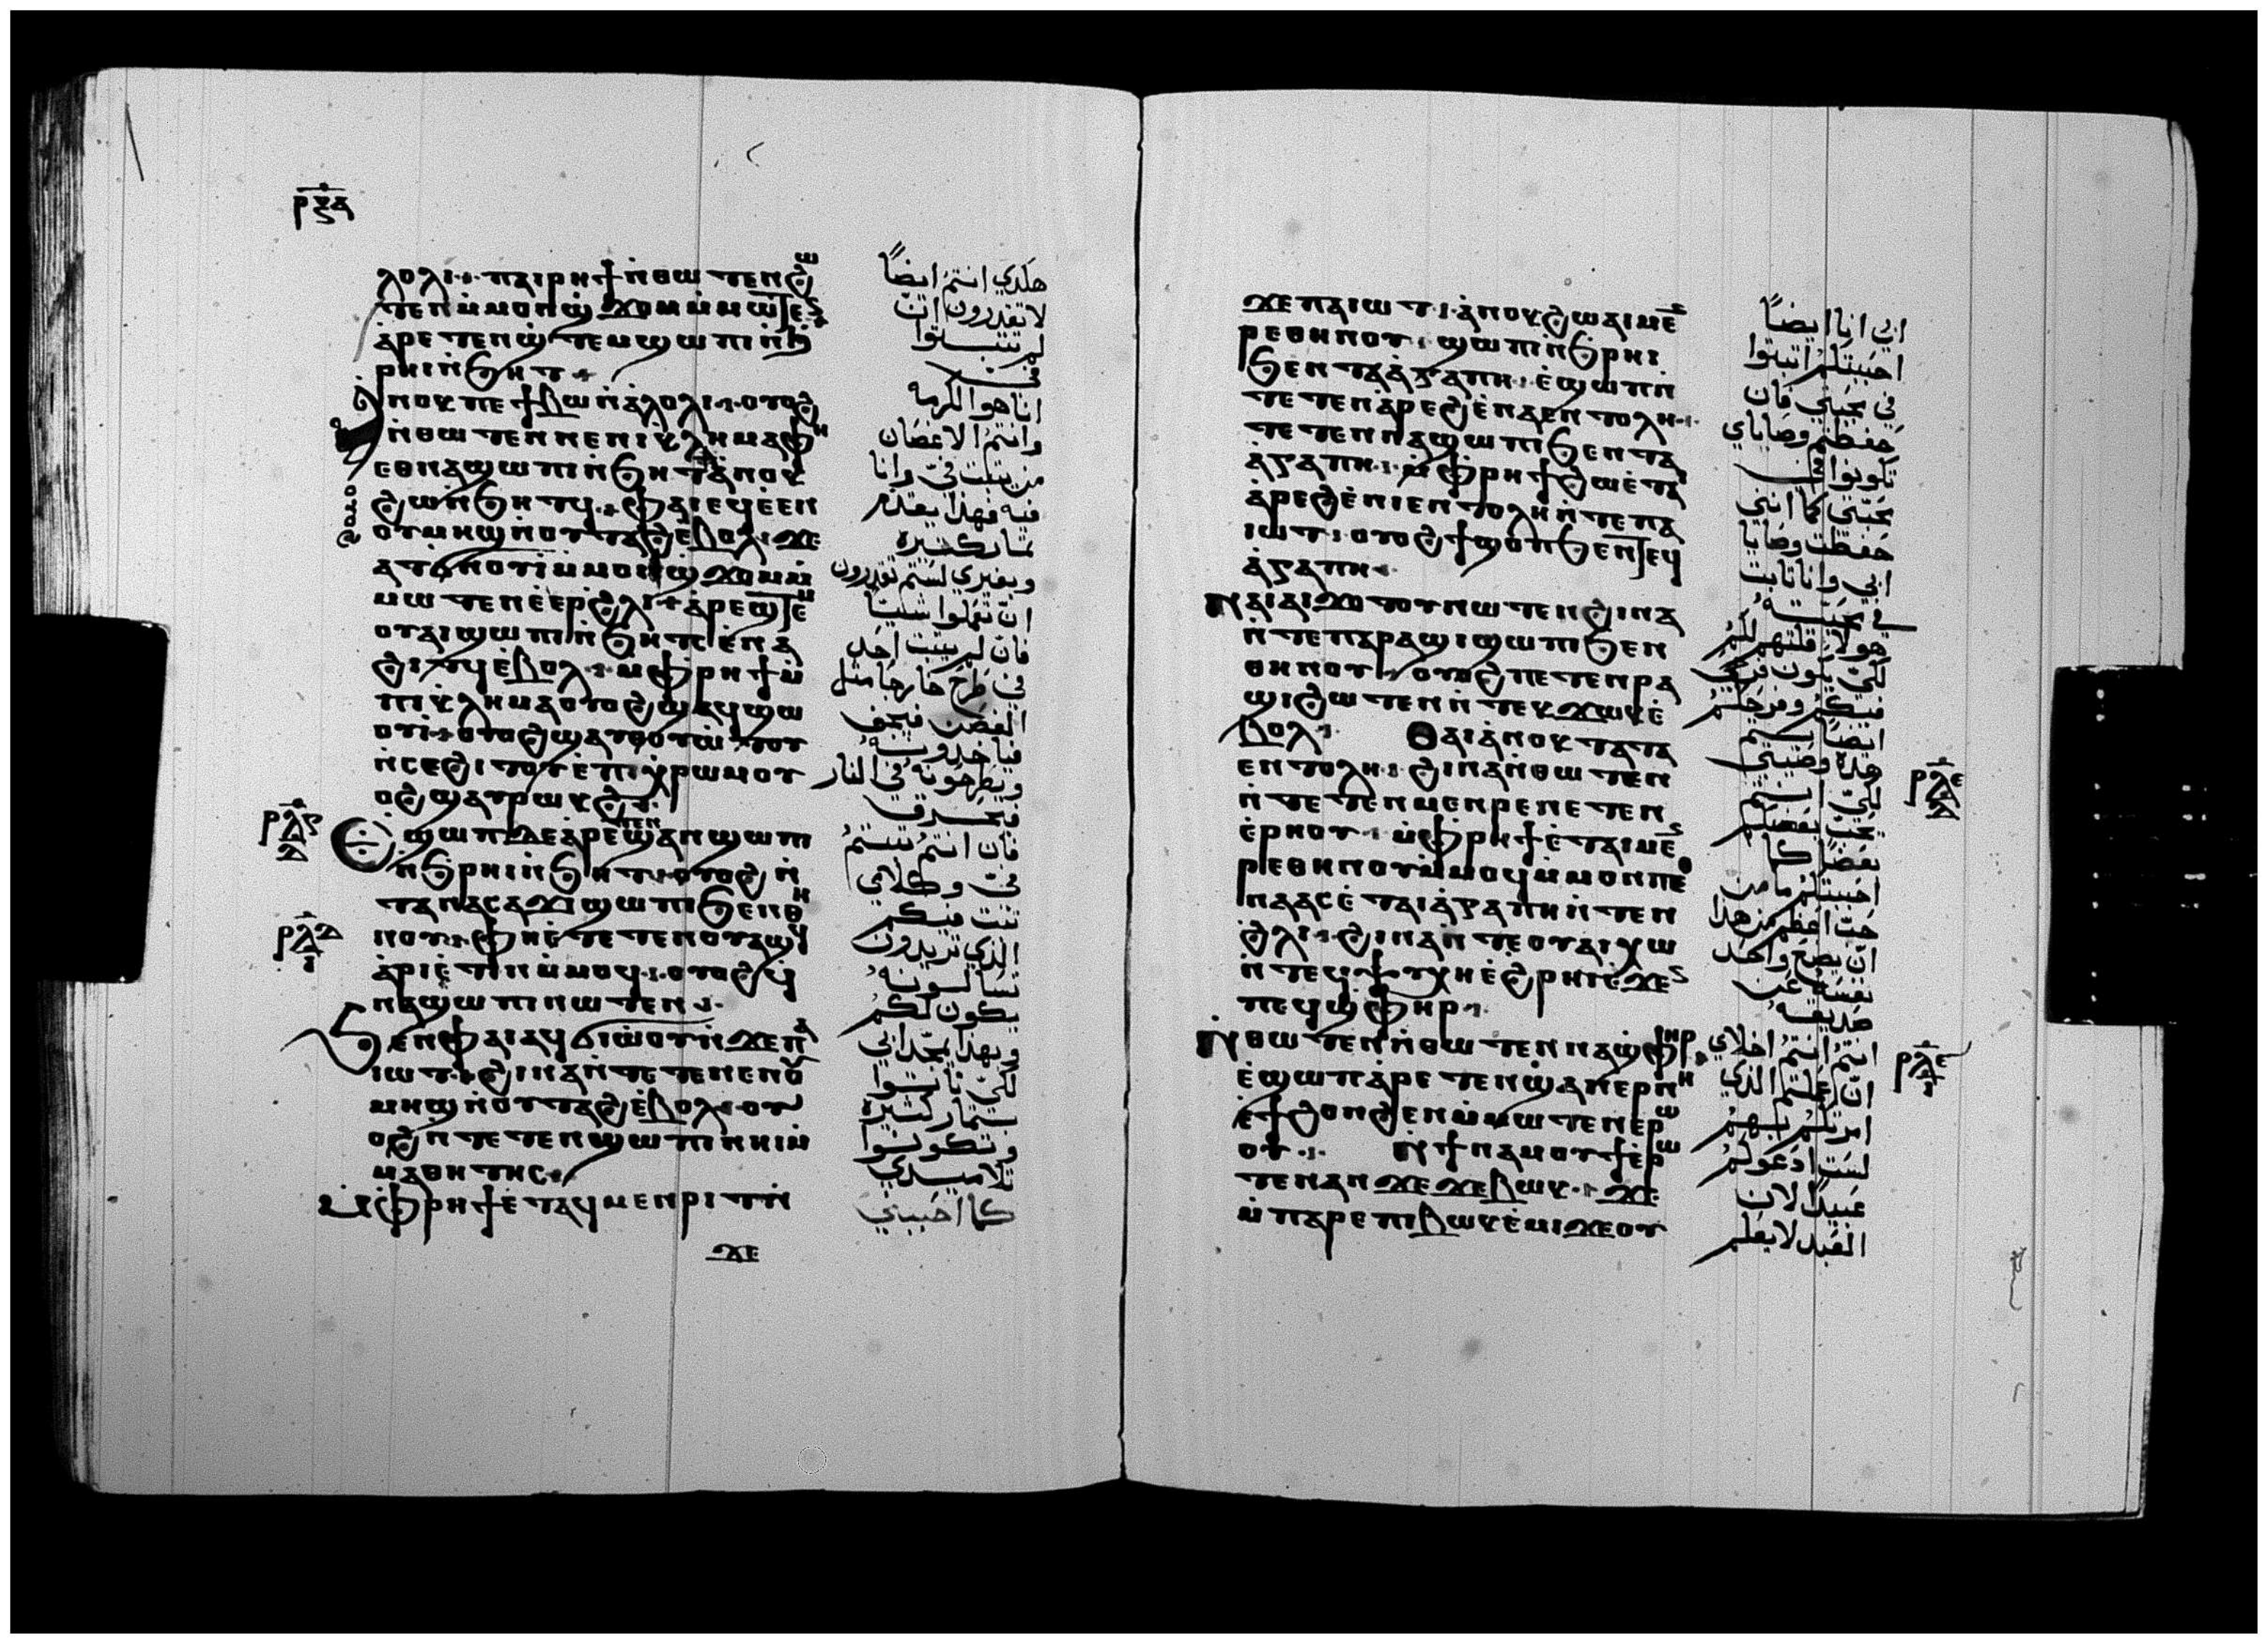 ⲣⲝⲁ
ⲗⲟⲗⲓ ⲡⲁⲓⲣⲏϯ ⲛ̇ⲑⲱⲧⲉⲛϩⲱ
ⲧⲉⲛ ⲙ̇ⲙⲟⲛϣϫⲟⲙ ⲙ̇ⲙⲱⲧⲉⲛ
ⲁ̇ⲣⲉⲧⲉⲛϣ̇ⲧⲉⲙϣⲱⲡⲓ ⲛ̇ϧ
ⲣⲏⲓ ⲛ̇ϧⲏⲧ
ⲁ̇ⲛⲟⲕ ⲡⲉ ϯⲃⲱ ⲛ̇ⲁ̇ⲗⲟⲗⲓ ⲟⲩⲟϩ
ⲛ̇ⲑⲱⲧⲉⲛ ⲛⲉ ⲛⲓⲕ̇ⲗⲏⲙⲁ ⲫⲏ
ⲉⲑⲛⲁϣⲱⲡⲓ ⲛ̇ϧⲏⲧ ⲁ̇ⲛⲟⲕ
ϩⲱ ⲛ̇ϧⲏⲧϥ ⲫⲁⲓ ⲉϥⲉ̇ⲉⲛ
ⲟⲩⲙⲏϣ ⲛ̇ⲟⲩⲧⲁϩ ⲉ̇ⲃⲟⲗ ϫⲉ
ⲁⲧϭⲛⲟⲩⲓ̇ ⲙ̇ⲙⲟⲛϣϫⲟⲙ ⲙ̇
ⲙⲱⲧⲉⲛ ⲉ̇ⲉⲣϩⲗⲓ ⲁ̇ⲣⲉϣⲧⲉⲙ
ⲟⲩⲁⲓ ϣⲱⲡⲓ ⲛ̇ϧⲏⲧ ⲥⲉ̇ⲛⲁ
ϩⲓⲧϥ ⲉ̇ⲃⲟⲗ ⲙ̇ⲫⲣⲏϯ ⲙ̇
ⲡⲓⲕ̇ⲗⲏⲙⲁ ⲟⲩⲟϩ ϣⲁϥϣⲱ
ⲟⲩⲓ̇ ⲟⲩⲟϩ ϣⲁⲩⲑⲟⲩⲱ̇ⲧⲟⲩ
ⲛ̇ⲥⲉϩⲓⲧⲟⲩ ⲉ̇ⲡⲓⲭ̇ⲣⲱⲙ ⲟⲩ
ⲟϩ ϣⲁⲩⲣⲱⲕϩ
ⲉϣⲱⲡ ⲇⲉ ⲁ̇ⲣⲉⲧⲉⲛϣⲁⲛϣⲱⲡⲓ
ⲛ̇ϧⲣⲏⲓ ⲛ̇ϧⲏⲧ ⲟⲩⲟϩ ⲛ̇
ⲧⲉ ⲛⲁⲥⲁϫⲓ ϣⲱⲡⲓ ϧⲉⲛ ⲑⲏ
ⲛⲟⲩ ⲫⲏ ⲉ̇ⲧⲉⲧⲉⲛⲟⲩⲁϣϥ
ⲁ̇ⲣⲓⲉ̇ⲧⲓⲛ ⲙ̇ⲙⲟϥ ⲟⲩⲟϩ ϥ
ⲛⲁϣⲱⲡⲓ ⲛⲱⲧⲉⲛ
ϧⲉⲛ ⲫⲁⲓ ⲁϥϭⲓⲱ̇ⲟⲩ ⲛ̇ϫⲉ ⲡⲁ
ⲓⲱⲧ ϩⲓⲛⲁ ⲛ̇ⲧⲉⲧⲉⲛⲉⲛ ⲟⲩ
ⲙⲏϣ ⲛ̇ⲟⲩⲧⲁϩ ⲉ̇ⲃⲟⲗ ⲟⲩ
ⲟϩ ⲛ̇ⲧⲉⲧⲉⲛϣⲱⲡⲓ ⲛⲏⲓ ⲙ̇
ⲙⲁⲑⲏⲧⲏⲥ
ⲙ̇ⲫⲣⲏϯ ⲉ̇ⲧⲁϥⲙⲉⲛⲣⲓⲧ ⲛ̇
ϫⲉ
ⲟⲩⲟϩ
ⲣⲗⲋ
ⲇ
ⲣⲗⲇ
هكذي انتم ايضاً
لا تقدرون ان
لم تثبتوا
فيّ
انا هو الكرمه
وانتم الاغصان
من يثبت فيّ وانا
فيه فهذا يقدم
ثمار كثيره
وبغيري لستم تقدرون
ان تعملوا شيئاً
فان لم يثبت احد
في طرح خارجاً مثل
الغصن فيجف
فياخذونه
ويطرحونه في النار
فيحترق
فان انتم ثبتم
فيّ وكلامي
ثبت فيكم
الذي تريدون
تسالونه
يكون لكم
وبهذا يمجد ابي
لكي تاتوا
بثمار كثيره
وتكونوا
تلاميذي
كما احبني
ϫⲉ ⲡⲁⲓⲱⲧ ⲁ̇ⲛⲟⲕ ϩⲱ ⲁⲓⲙⲉⲛ
ⲣⲉ ⲑⲏⲛⲟⲩ ϣⲱⲡⲓ ⲛ̇ϧⲣⲏⲓ
ϧⲉⲛ ⲧⲁⲁ̇ⲅⲁⲡⲏ ⲉ̇ϣⲱⲡ ⲛ̇
ⲧⲉⲧⲉⲛⲁ̇ⲣⲉϩ ⲉ̇ⲛⲁⲉⲛⲧⲟⲗⲏ
ⲧⲉⲧⲉⲛⲛⲁϣⲱⲡⲓ ϧⲉⲛ ⲧⲁ
ⲁ̇ⲅⲁⲡⲏ ⲙ̇ⲫⲣⲏϯ ϩⲱ ⲉ̇ⲧⲁ
ⲁ̇ⲣⲉϩ ⲉ̇ⲛⲓⲉⲛⲧⲟⲗⲏ ⲛ̇ⲧⲉ ⲡⲁ
ⲓⲱⲧ ⲟⲩⲟϩ ϯϣⲟⲡ ϧⲉⲛ ⲧⲉϥ
ⲁ̇ⲅⲁⲡⲏ
ⲛⲁⲓ ⲁⲓϫⲟⲧⲟⲩ ⲛⲱⲧⲉⲛ ϩⲓⲛⲁ
ⲛ̇ⲧⲉ ⲡⲁⲣⲁϣⲓ ϣⲱⲡⲓ ϧⲉⲛ
ⲑⲏⲛⲟⲩ ⲟⲩⲟϩ ⲡⲉⲧⲉⲛⲣⲁ
ϣⲓ ϩⲱⲧⲉⲛ ⲛ̇ⲧⲉϥϫⲱⲕ ⲉ̇
ⲃⲟⲗ ⲑⲁⲓ ⲁ̇ⲛⲟⲕ ⲧⲉ ⲧⲁ
ⲉⲛⲧⲟⲗⲏ ϩⲓⲛⲁ ⲛ̇ⲑⲱⲧⲉⲛ
ⲛ̇ⲧⲉⲧⲉⲛⲙⲉⲛⲣⲉ ⲛⲉⲧⲉⲛ
ⲉ̇ⲣⲏⲟⲩ ⲙ̇ⲫⲣⲏϯ ⲉ̇ⲧⲁⲓⲙⲉⲛ
ⲣⲉ ⲑⲏⲛⲟⲩ ⲙ̇ⲙⲟϥ ⲙ̇ⲙⲟⲛ ⲡⲉⲑ
ⲛⲁⲁⲥ ⲉ̇ⲧⲁⲓⲁ̇ⲅⲁⲡⲏ ⲛ̇ⲧⲉⲛ
ϩ̇ⲗⲓ ϩⲓⲛⲁ ⲛ̇ⲧⲉ ⲟⲩⲁⲓ ⲭⲱ
ⲛ̇ⲧⲉϥⲯⲩⲭⲏ ⲉ̇ϩⲣⲏⲓ ⲉ̇ϫⲉⲛ
ⲡⲉϥϣⲫⲏⲣ
ⲛ̇ⲑⲱⲧⲉⲛ ⲛ̇ⲑⲱⲧⲉⲛ ⲛⲁϣ̇ⲫⲏⲣ
ⲉ̇ϣⲱⲡ ⲁ̇ⲣⲉⲧⲉⲛϣ̇ⲁⲛⲉⲣ ⲛⲏ
ⲉ̇ϯϩⲟⲛϩⲉⲛ ⲙ̇ⲙⲱⲧⲉⲛ ⲉⲣⲱ
ⲟⲩ ⲛ̇ϯⲛⲁⲙⲟⲩϯ ⲉ̇ⲣⲱ
ⲧⲉⲛ ⲁⲛ ϫⲉ ϫⲉ ⲃⲱⲕ ϫⲉ
ⲙ̇ⲡⲁⲣⲉ ⲡⲓⲃⲱⲕ ⲉ̇ⲙⲓ ϫⲉ ⲟⲩ
ابي انا ايضاً
احببتكم اثبتوا
في محبتي فان
حفظتم وصاياي
تكونوا في
محبتي كما انني
حفظت وصايا
ابي وانا ثابت
في محبته
هولا قلتهم لكم
لكي يكون فرحي
فيكم وفرحكم
ايضاً يتم
هذه وصيتي
لكي انتم
يحب بعضكم
بعضاً كما
احببتكم ما من
حب اعظم من هذا
ان يضع واحد
نفسه عن
صديقه
انتم انتم اخلاي
ان عملتم الذي
امرتكم بهم
لست ادعوكم
عبيداً لان
العبد لا يعلم
ⲣⲗⲉ
ⲇ
ⲣⲗⲉ